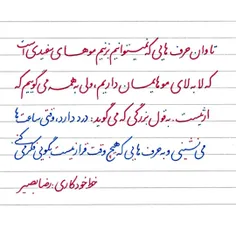 تاوان حرف هایی که نمیتوانیم بزنیم موهای سفیدی است
که لا به لای موهایمان داریم، ولی به همه می گوییم که
ارثیست. به قول بزرگی که می گوید: درد دارد، وقتی ساعت ها
می نشینی و به حرف هایی که هیچ وقت قرار نیست بگویی فکر می کنی
خط خودکاری: رضا بصیر